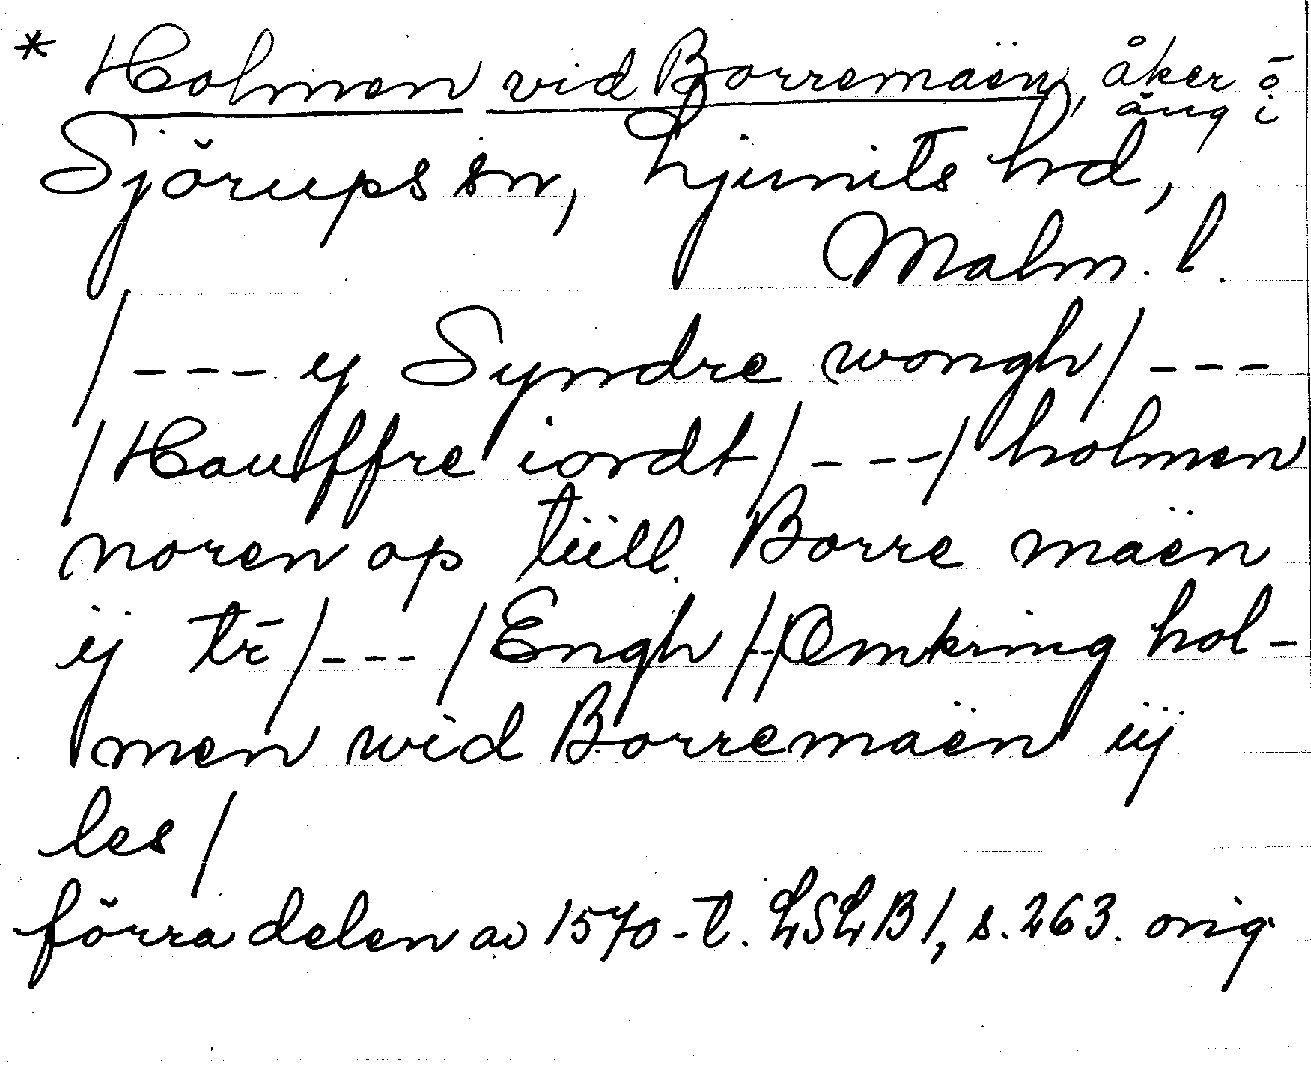 * Holmen vid Borremaën, åker ō
äng i
Sjörups sn, Ljunits hd,
Malm. l.
/ - - - y Syndre wongh / - - -
/ Hauffre iordt / - - - / holmen
noren op tiill Borre maën
ij tr̄ / - - - / Engh /-/ Omkring hol-
men wid Borremaën iij
les /
förra delen av 1570-t. LSLB 1, s. 263. orig